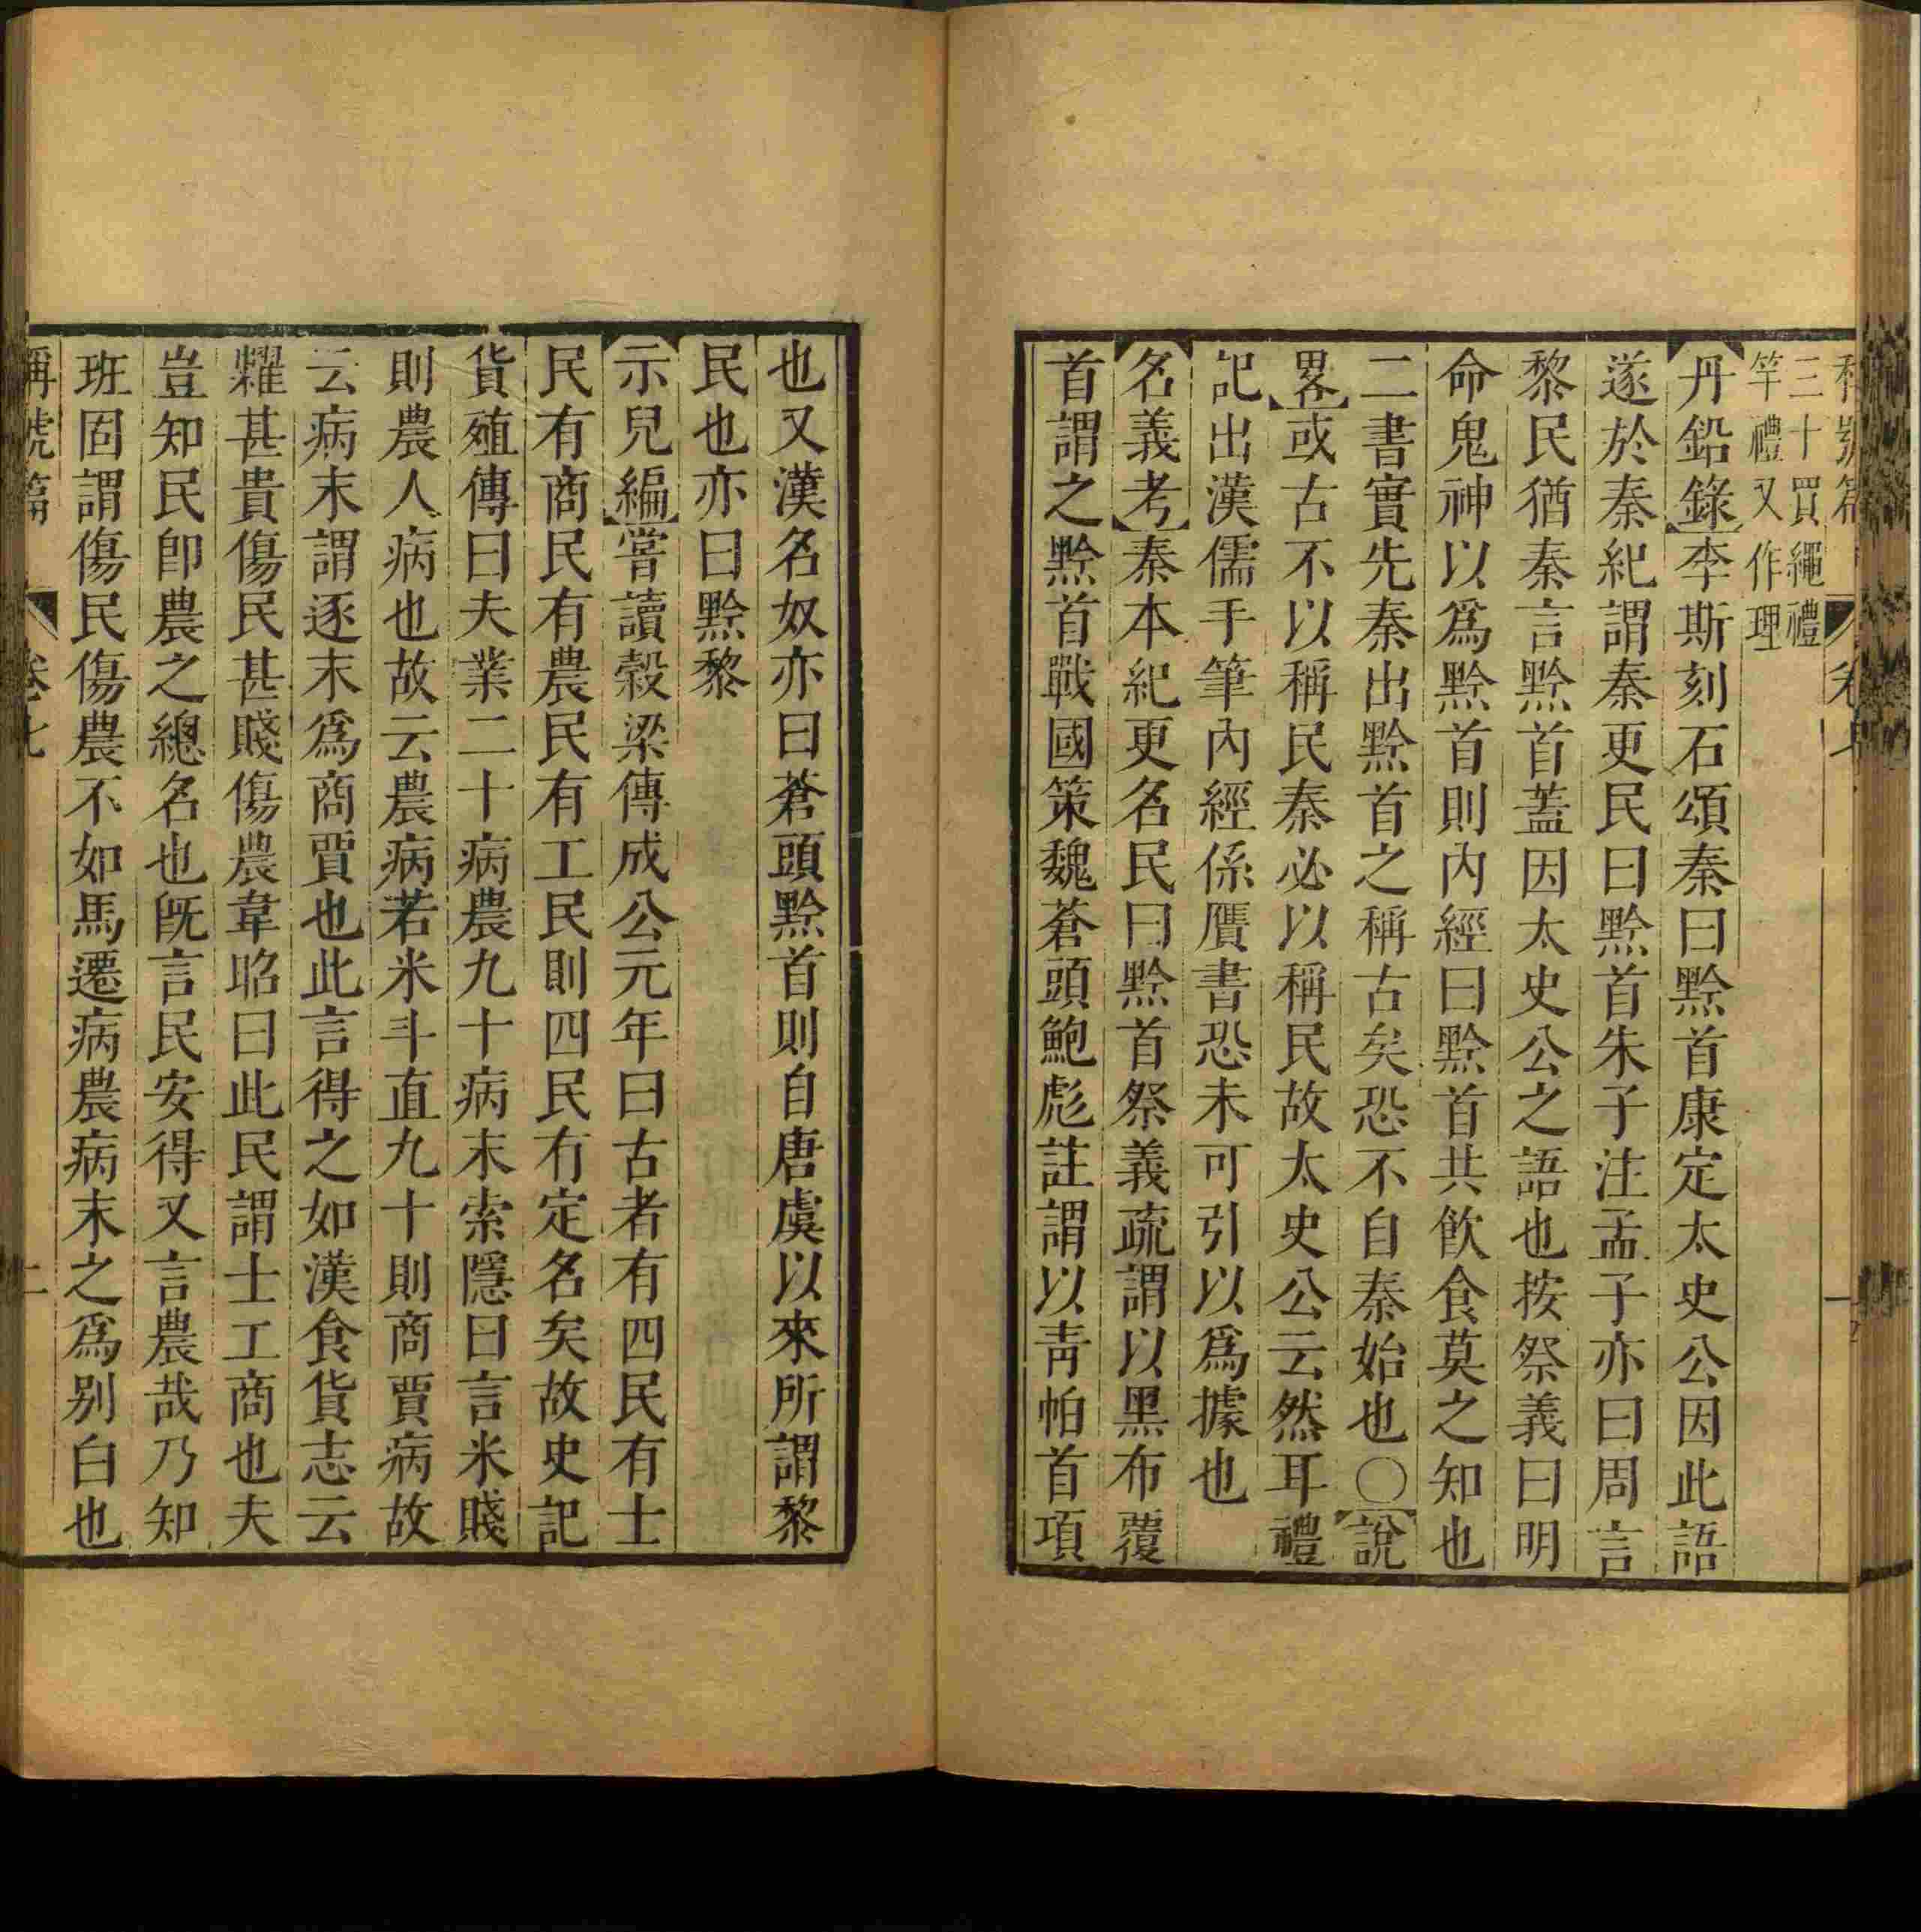 三十買繩禮
竿禮又作理
丹鉛錄李斯刻石頌秦曰黔首康定太史公因此語
遂於秦紀謂秦更民曰黔首朱子注孟子亦曰周言
黎民猶秦言黔首蓋因太史公之語也按祭義曰明
命鬼神以爲黔首則內經曰黔首共飲食莫之知也
二書實先秦出黔首之稱古矣恐不自秦始也〇說
畧或古不以稱民秦必以稱民故太史公云然耳禮
記出漢儒手筆內經係贋書恐未可引以爲據也
名義考秦本紀更名民曰黔首祭義疏謂以黑布覆
首謂之黔首戰國策魏蒼頭鮑彪註謂以靑帕首項
也又漢名奴亦曰蒼頭黔首則自唐虞以來所謂黎
民也亦曰黔黎
示兒編嘗讀穀梁傳成公元年曰古者有四民有士
民有商民有農民有工民則四民有定名矣故史記
貨殖傳曰夫業二十病農九十病末索隱曰言米賤
則農人病也故云農病若米斗直九十則商賈病故
云病末謂逐末爲商賈也此言得之如漢食貨志云
糶甚貴傷民甚賤傷農韋昭曰此民謂士工商也夫
豈知民卽農之總名也旣言民安得又言農哉乃知
班固謂傷民傷農不如馬遷病農病末之爲别白也
稱號篇 卷七 二